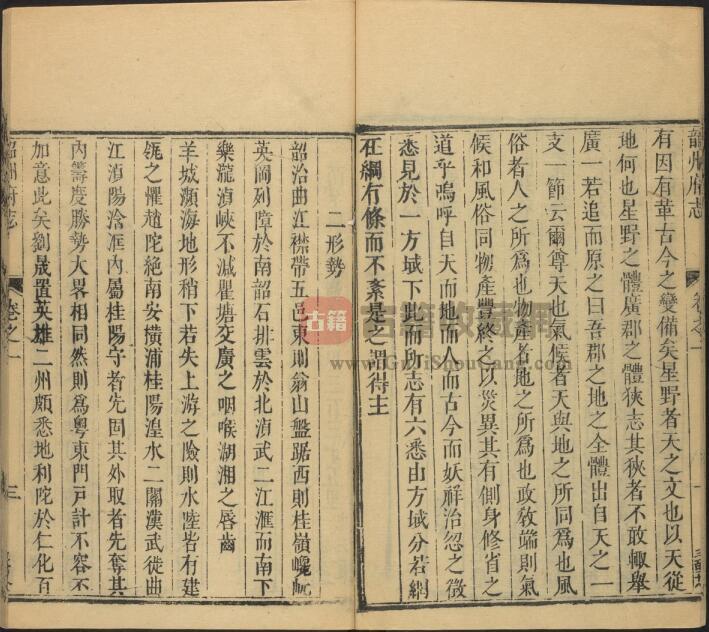 韶州府志
卷之一
有因有革古今之變備矣星野者天之文也以天從
地何也星野之體廣郡之體狹志其狹者不敢輙舉
廣一若追而原之曰吾郡之地之全體出自天之一
支一節云爾尊天也氣候者天與地之所同爲也風
俗者人之所爲也物產者地之所爲也政敎端則氣
候和風俗同物產豐終之以災異其有側身修省之
道乎嗚呼自天而地而人而古今而妖祥治忽之徵
悉見於一方域下此而所志有六悉由方域分若網
在綱有條而不紊是之謂得主
二形勢
韶治曲江襟帶五邑東則翁山盤踞西則桂嶺巉岏
英岡列障於南韶石排雲於北湞武二江滙而南下
樂瀧湞峽不減瞿塘交廣之咽喉湖湘之唇齒
羊城瀕海地形稍下若失上游之險則水陸皆有建
瓴之懼趙陀絕南安橫浦桂陽湟水二關漢武徙曲
江湞陽浛洭內屬桂陽守者先固其外取者先奪其
內籌度勝勢大畧相同然則爲粤東門戸計不容不
加意此矣劉晟置英雄二州頗悉地利陀於仁化百
卷之一
三
古籍
古籍收藏網
www.GuJiShouCang.com